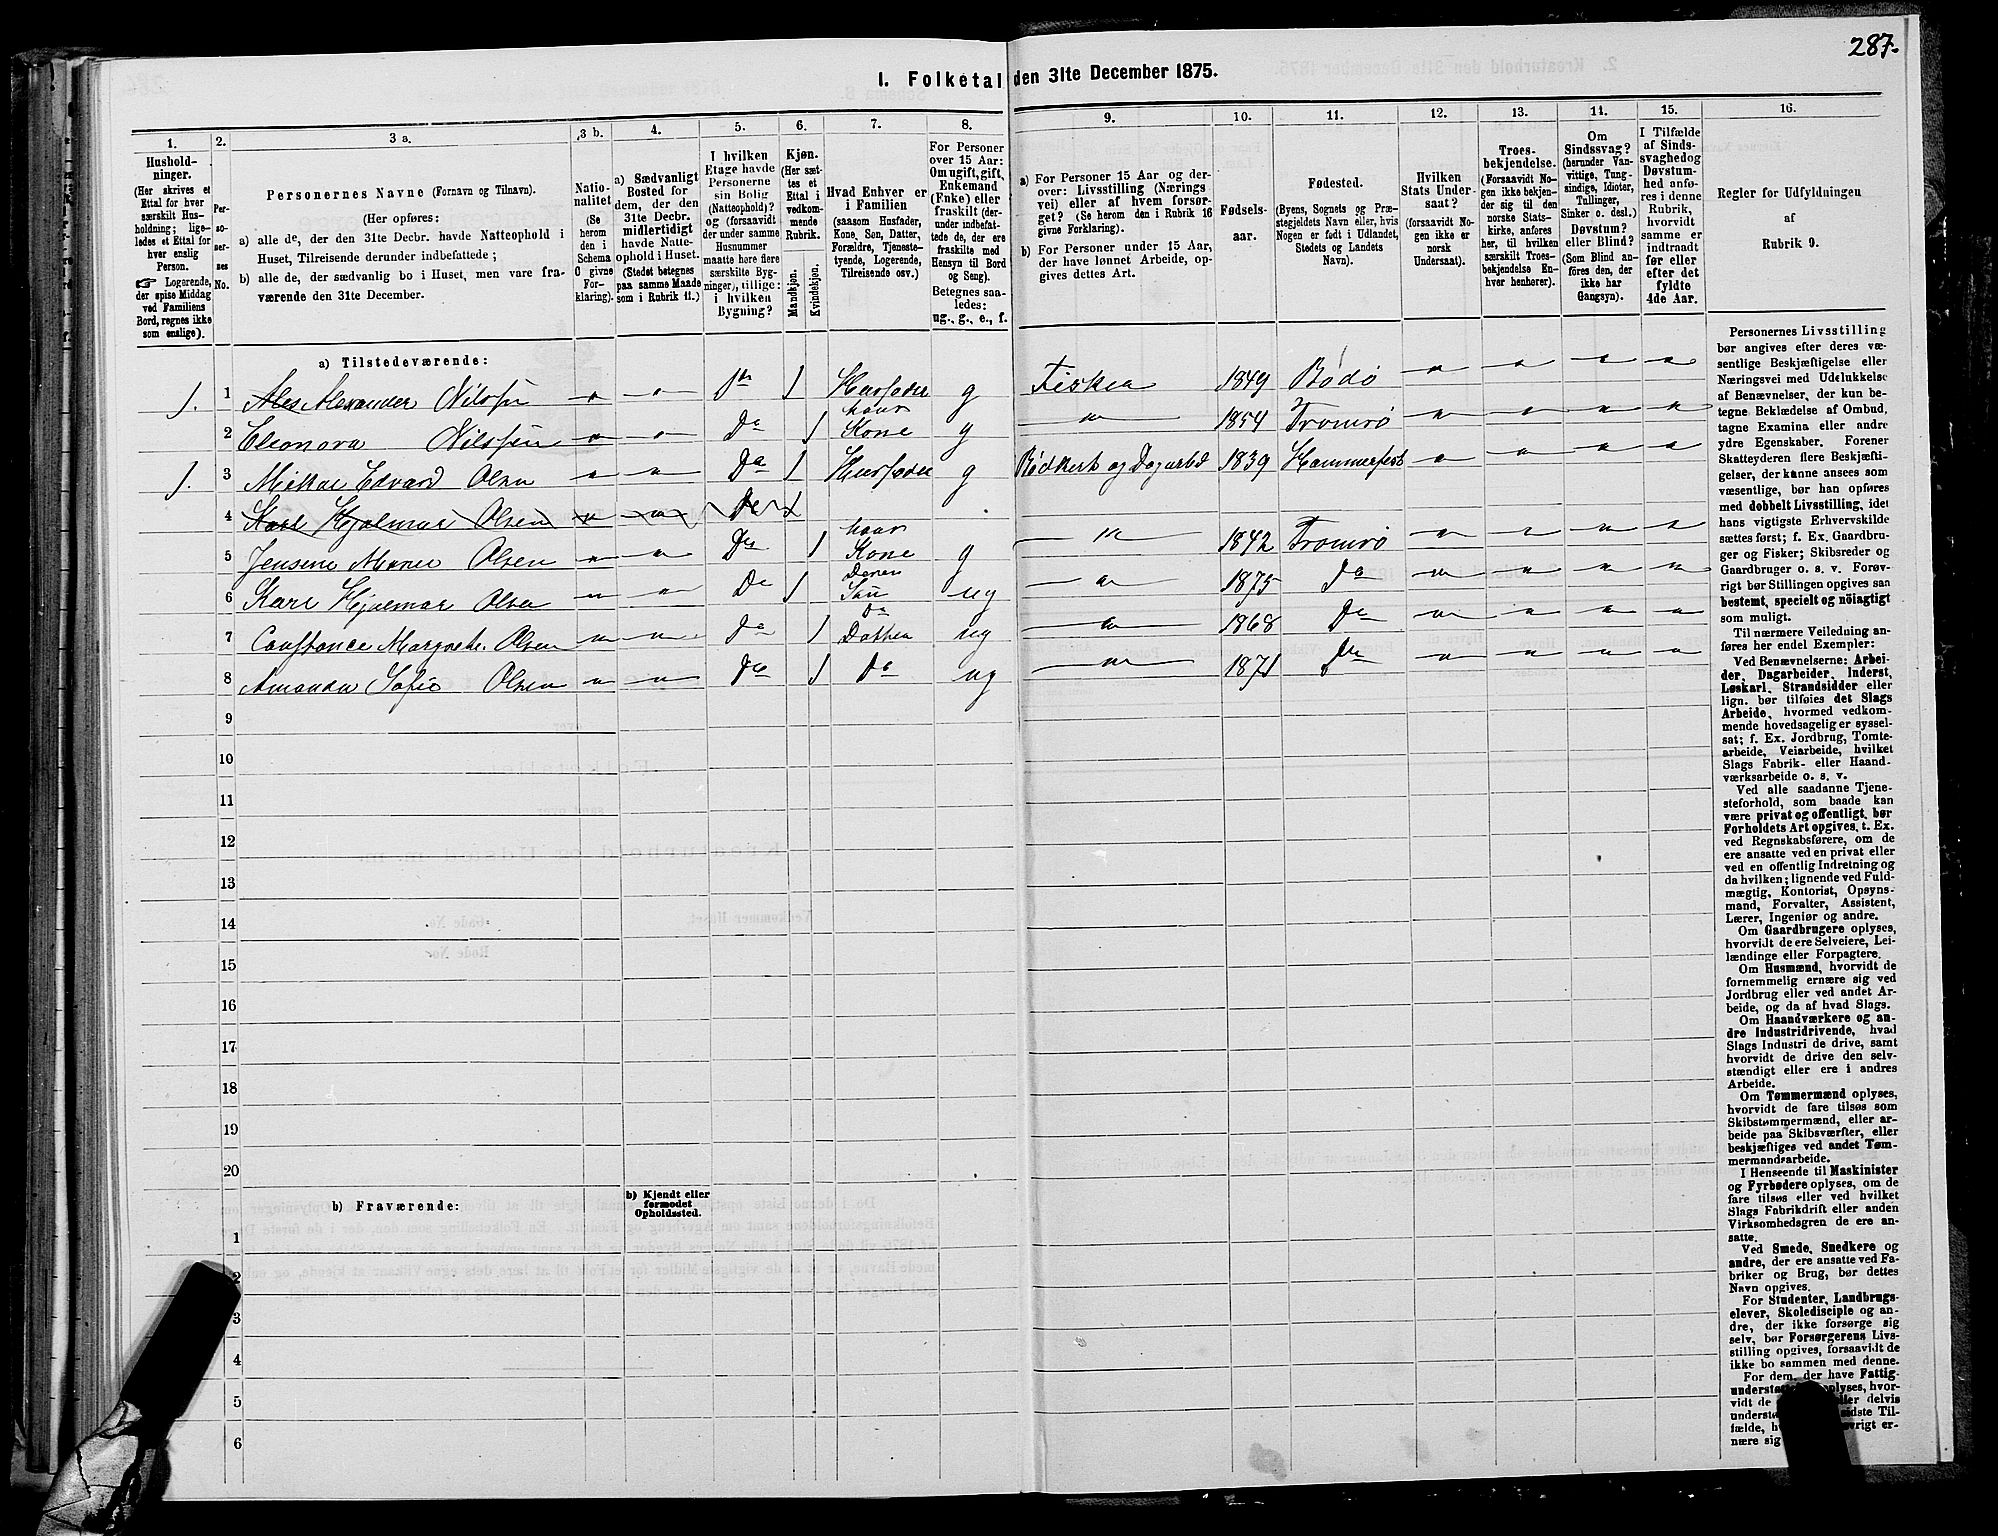 287.
1. Folketal den 31te December 1875.
1. 2. 3 a. 3 b. 4. 5. 6. 7. 8. 9. 10. 11. 12. 13. 14. 15. 16.
Hushold-
ninger.
(Her skrives et
Ettal for hver
særskilt Hus-
holdning; lige-
ledes et Ettal for
hver enslig
Person.
Logerende,
der spise Middag
ved Familiens
Bord, regnes ikke
som enslige).
Per-
so-
ner-
nes
No.
Personernes Navne (Fornavn og Tilnavn).
(Her opføres:
a) alle de, der den 31te Decbr. havde Natteophold i
Huset, Tilreisende derunder indbefattede;
b) alle de, der sædvanlig bo i Huset, men vare fra-
værende den 31te December.
Natio-
nalitet
(Se
herom
den i
Schema
C givne
For-
klaring).
a) Sædvanligt
Bosted for
dem, der den
31te Decbr.
midlertidigt
havde Natte-
ophold i Huset.
(Stedet betegnes
paa samme Maade
som i Rubrik 11.)
I hvilken
Etage havde
Personerne
sin Bolig
(Natteophold)?
og (forsaavidt
der under samme
Husnummer
maatte høre flere
særskilte Byg-
ninger), tillige:
i hvilken
Bygning?
Kjøn.
(Her sæt-
tes et
Ettal i
vedkom-
mende
Rubrik.
Mandkjøn.
Kvindekjøn.
Hvad Enhver er
i Familien
(saasom Husfader,
Kone, Søn, Datter,
Forældre, Tjeneste-
tyende, Logerende,
Tilreisende osv.)
For Personer
over 15 Aar:
Om ugift, gift,
Enkemand
(Enke) eller
fraskilt (der-
under indbefat-
tede de, der ere
fraskilte med
Hensyn til Bord
og Seng).
Betegnes saa-
ledes:
ug., g., e., f.
a) For Personer 15 Aar og der-
over: Livsstilling (Nærings
vei) eller af hvem forsør-
get? (Se herom den i Rubrik 16
givne Forklaring).
b) For Personer under 15 Aar,
der have lønnet Arbeide, op-
gives dettes Art.
Fødsels-
aar.
Fødested.
(Byens, Sognets og Præ-
stegjeldets Navn eller, hvis
Nogen er født i Udlandet,
Stedets og Landets
Navn).
Hvilken
Stats Under-
saat?
(forsaavidt No-
gen ikke er
norsk
Undersaat).
Troes-
bekjendelse.
(Forsaavidt No-
gen ikke bekjen-
der sig til den
norske Stats-
kirke, anføres
her, til hvilken
særskilt Troes-
bekjendelse En-
hver henhører).
Om
Sindssvag?
(herunder Van-
vittige, Tung-
sindige, Idioter,
Tullinger,
Sinker o. desl.)
Døvstum?
eller Blind?
(Som Blind an-
føres den, der
ikke har
Gangsyn).
I Tilfælde
af Sinds-
svaghed og
Døvstum-
hed anfø-
res i denne
Rubrik,
hvorvidt
samme er
indtraadt
før eller
efter det
fyldte
4de Aar.
Regler for Udfyldningen
af
Rubrik 9.
a) Tilstedeværende:
1. 1 Alexander Nilsen 1 Husfader g Fisker 1849 Bodø
2 Eleonora Nilsen Do 1 hans Kone g 1854 Tromsø
1. 3 Mikal Edvard Olsen Do 1 Husfader g Bødker og Dagarbd 1839 Hammerfest
4 Karl Hjalmar Olsen Do
5 Jensine Marie Olsen Do 1 hans Kone g 1842 Tromsø
6 Karl Hjalmar Olsen Do 1 Deres Søn ug 1875 Do
7 Constance Margrethe Olsen Do 1 Do Datter ug 1868 Do
8 Amanda Sofie Olsen Do 1 Do ug 1871 Do
9
10
11
12
13
14
15
16
17
18
19
20
b) Fraværende:
b) Kjendt eller
formodet
Opholdssted.
1
2
3
4
5
6
Personernes Livsstilling
bør angives efter deres væ-
sentlige Beskjæftigelse eller
Næringsvei med Udelukkelse
af Benævnelser, der kun be-
tegne Beklædelse af Ombud,
tagne Examina eller andre
ydre Egenskaber. Forener
Skatteyderen flere Beskjæfti-
gelser, der kunne ansees som
væsentlige, bør han opføres
med dobbelt Livsstilling, idet
hans vigtigste Erhvervskilde
sættes først; f. Ex. Gaardbru-
ger og Fisker; Skibsreder og
Gaardbruger o. s. v. Forøv-
rigt bør Stillingen opgives saa
bestemt, specielt og nöiagtigt
som muligt.
Til nærmere Veiledning an-
føres her endel Exempler:
Ved Benævnelserne: Arbei-
der, Dagarbeider, Inderst,
Løskarl, Strandsidder eller
lign. bør tilføies det Slags
Arbeide, hvormed vedkom-
mende hovedsagelig er syssel-
sat; f. Ex. Jordbrug, Tomte-
arbeide, Veiarbeide, hvilket
Slags Fabrik- eller Haand-
værksarbeide o. s. v.
Ved alle saadanne Tjene-
steforhold, som baade kan
være privat og offentligt, bør
Forholdets Art opgives, t. Ex.
ved Regnskabsførere, om de
ere ansatte ved en privat eller
ved en offentlig Indretning og
da hvilken; lignende ved Fuld-
mægtig, Kontorist, Opsyns-
mand, Forvalter, Assistent,
Lærer, Ingeniør og andre.
Om Gaardbrugere oplyses,
hvorvidt de ere Selveiere, Lei-
lændinge eller Forpagtere.
Om Husmænd, hvorvidt de
fornemmelig ernære sig ved
Jordbrug eller ved andet Ar-
beide, og da af hvad Slags.
Om Haandværkere og an-
dre Industridrivende, hvad
Slags Industri de drive, samt
hvorvidt de drive den selv-
stændigt eller ere i andres
Arbeide.
Om Tømmermænd oplyses,
hvorvidt de fare tilsøs som
Skibstømmermænd, eller ar-
beide paa Skibsværfter, eller
beskjæftiges ved andet Tøm-
mermandsarbeide.
I Henseende til Maskinister
og Fyrbødere oplyses, om de
fare tilsøs eller ved hvilket
Slags Fabrikdrift eller anden
Virksomhedsgren de ere an-
satte.
Ved Smede, Snedkere og
andre, der ere ansatte ved Fa-
briker og Brug, bør dettes
Navn opgives.
For Studenter, Landbrugs-
elever, Skoledisciple og an-
dre, der ikke forsørge sig
selv, bør Forsørgerens Livs-
stilling opgives, forsaavidt de
ikke bo sammen med denne.
For dem, der have Fattig-